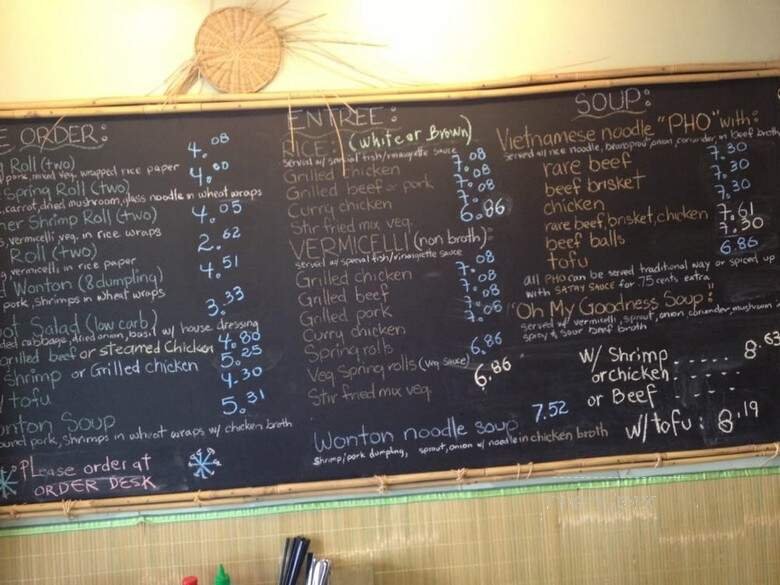 E ORDER:
Roll (two) 4.08
pork, mixed veg. wrapped rice paper
Spring Roll (two) 4.60
carrot, dried mushroom, glass noodle in wheat wraps
er Shrimp Roll (two) 4.05
vermicelli, veg. in rice wraps
Roll (two) 2.62
vermicelli in rice paper
Wonton (8 dumpling) 4.51
pork, shrimps in wheat wraps
3.33
ot Salad (low carb)
ded cabbage, dried onion, basil w/ house dressing
grilled beef or steamed Chicken 4.80
shrimp or Grilled chicken 5.25
tofu 4.30
5.31
nton Soup
ound pork, shrimps in wheat wraps w/ chicken broth
Please order at
ORDER DESK
ENTREE:
RICE: (white or Brown)
served w/ special fish/vinaigrette sauce
Grilled chicken 7.08
Grilled beef or pork 7.08
Curry chicken 7.08
Stir fried mix veg. 6.86
VERMICELLI (non broth):
served w/ special fish/vinaigrette sauce
Grilled chicken 7.08
Grilled beef 7.08
Grilled pork 7.08
Curry chicken 7.08
Spring rolls 6.86
Veg Spring rolls (veg sauce)
Stir fried mix veg. 6.86
Wonton noodle soup 7.52
shrimp/pork dumpling, sprout, onion w/ noodle in chicken broth
SOUP:
Vietnamese noodle "PHO" with:
served w/ rice noodle, beansprout, onion, coriander in beef broth
rare beef 7.30
beef brisket 7.30
chicken 7.30
rare beef, brisket, chicken 7.61
beef balls 7.30
tofu 6.86
all PHO can be served traditional way or spiced up
with SATAY SAUCE for 75 cents extra
"Oh My Goodness Soup:"
served w/ vermicelli, sprout, onion coriander, mushroom
spicy & sour beef broth
W/ Shrimp ..... 8.63
or chicken
or Beef
w/ tofu: 8.19